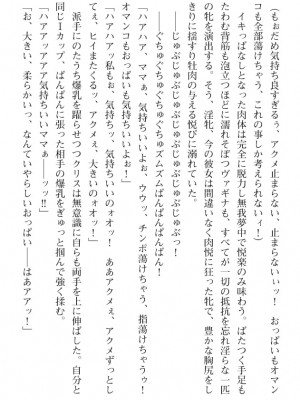 (もぉだめ気持ち良すぎるぅ、アクメ止まらない、止まらないぃッ！　おっぱいもオマン
コも全部蕩けちゃう、これの事しか考えられないィ！)
　イキっぱなしとなった肉体は完全に脱力し無我夢中で悦楽のみ味わう。ばたつく手足も
たわむ背筋も泡立つほどに濡れそぼつヴァギナも、すべてが一切の抵抗を忘れ淫らな一匹
の牝を演出する。そう、淫牝、今の彼女は間違いなく肉悦に狂った牝で、豊かな胸尻をし
きりに揺すり牡肉の与える悦びに溺れていた。
　じゅぶじゅぶじゅぶじゅぶじゅぶじゅぶじゅぶっ！
　ぐちゅぐちゅぐちゅぐちゅズムズムぱんぱんぱんっ！
「ハァハァ、ママぁ、気持ちいいよぉ、ウウッ、チンポ蕩けちゃう、指蕩けちゃうぅ！
オマンコもおっぱいも気持ちいいよぉ！」
「ハァハァ私もぉ、気持ちっ、気持ちいいのォオッ！　ああアクメぇ、アクメずっとし
てぇぇ、ヒィまたくるぅ、アクメぇ、大きいのォオッ！」
　派手にのたうち爆乳を躍らせつつクリスは無意識に自らも両手を上に伸ばした。自分と
同じＩカップ、ぱんぱんに張った相手の爆乳をぎゅっと掴んで強く揉む。
「ハアァッアアア気持ちいいママぁ――ッッ!!」
「あっ、大きい、柔らかいっ、なんていやらしいおっぱい――はああアッ！」